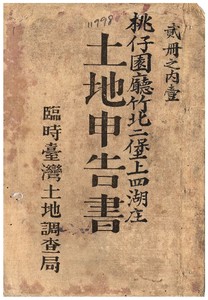 11798
貳冊之內壹
桃仔園廳竹北二堡上四湖庄
土地申告書
臨時臺灣土地調查局